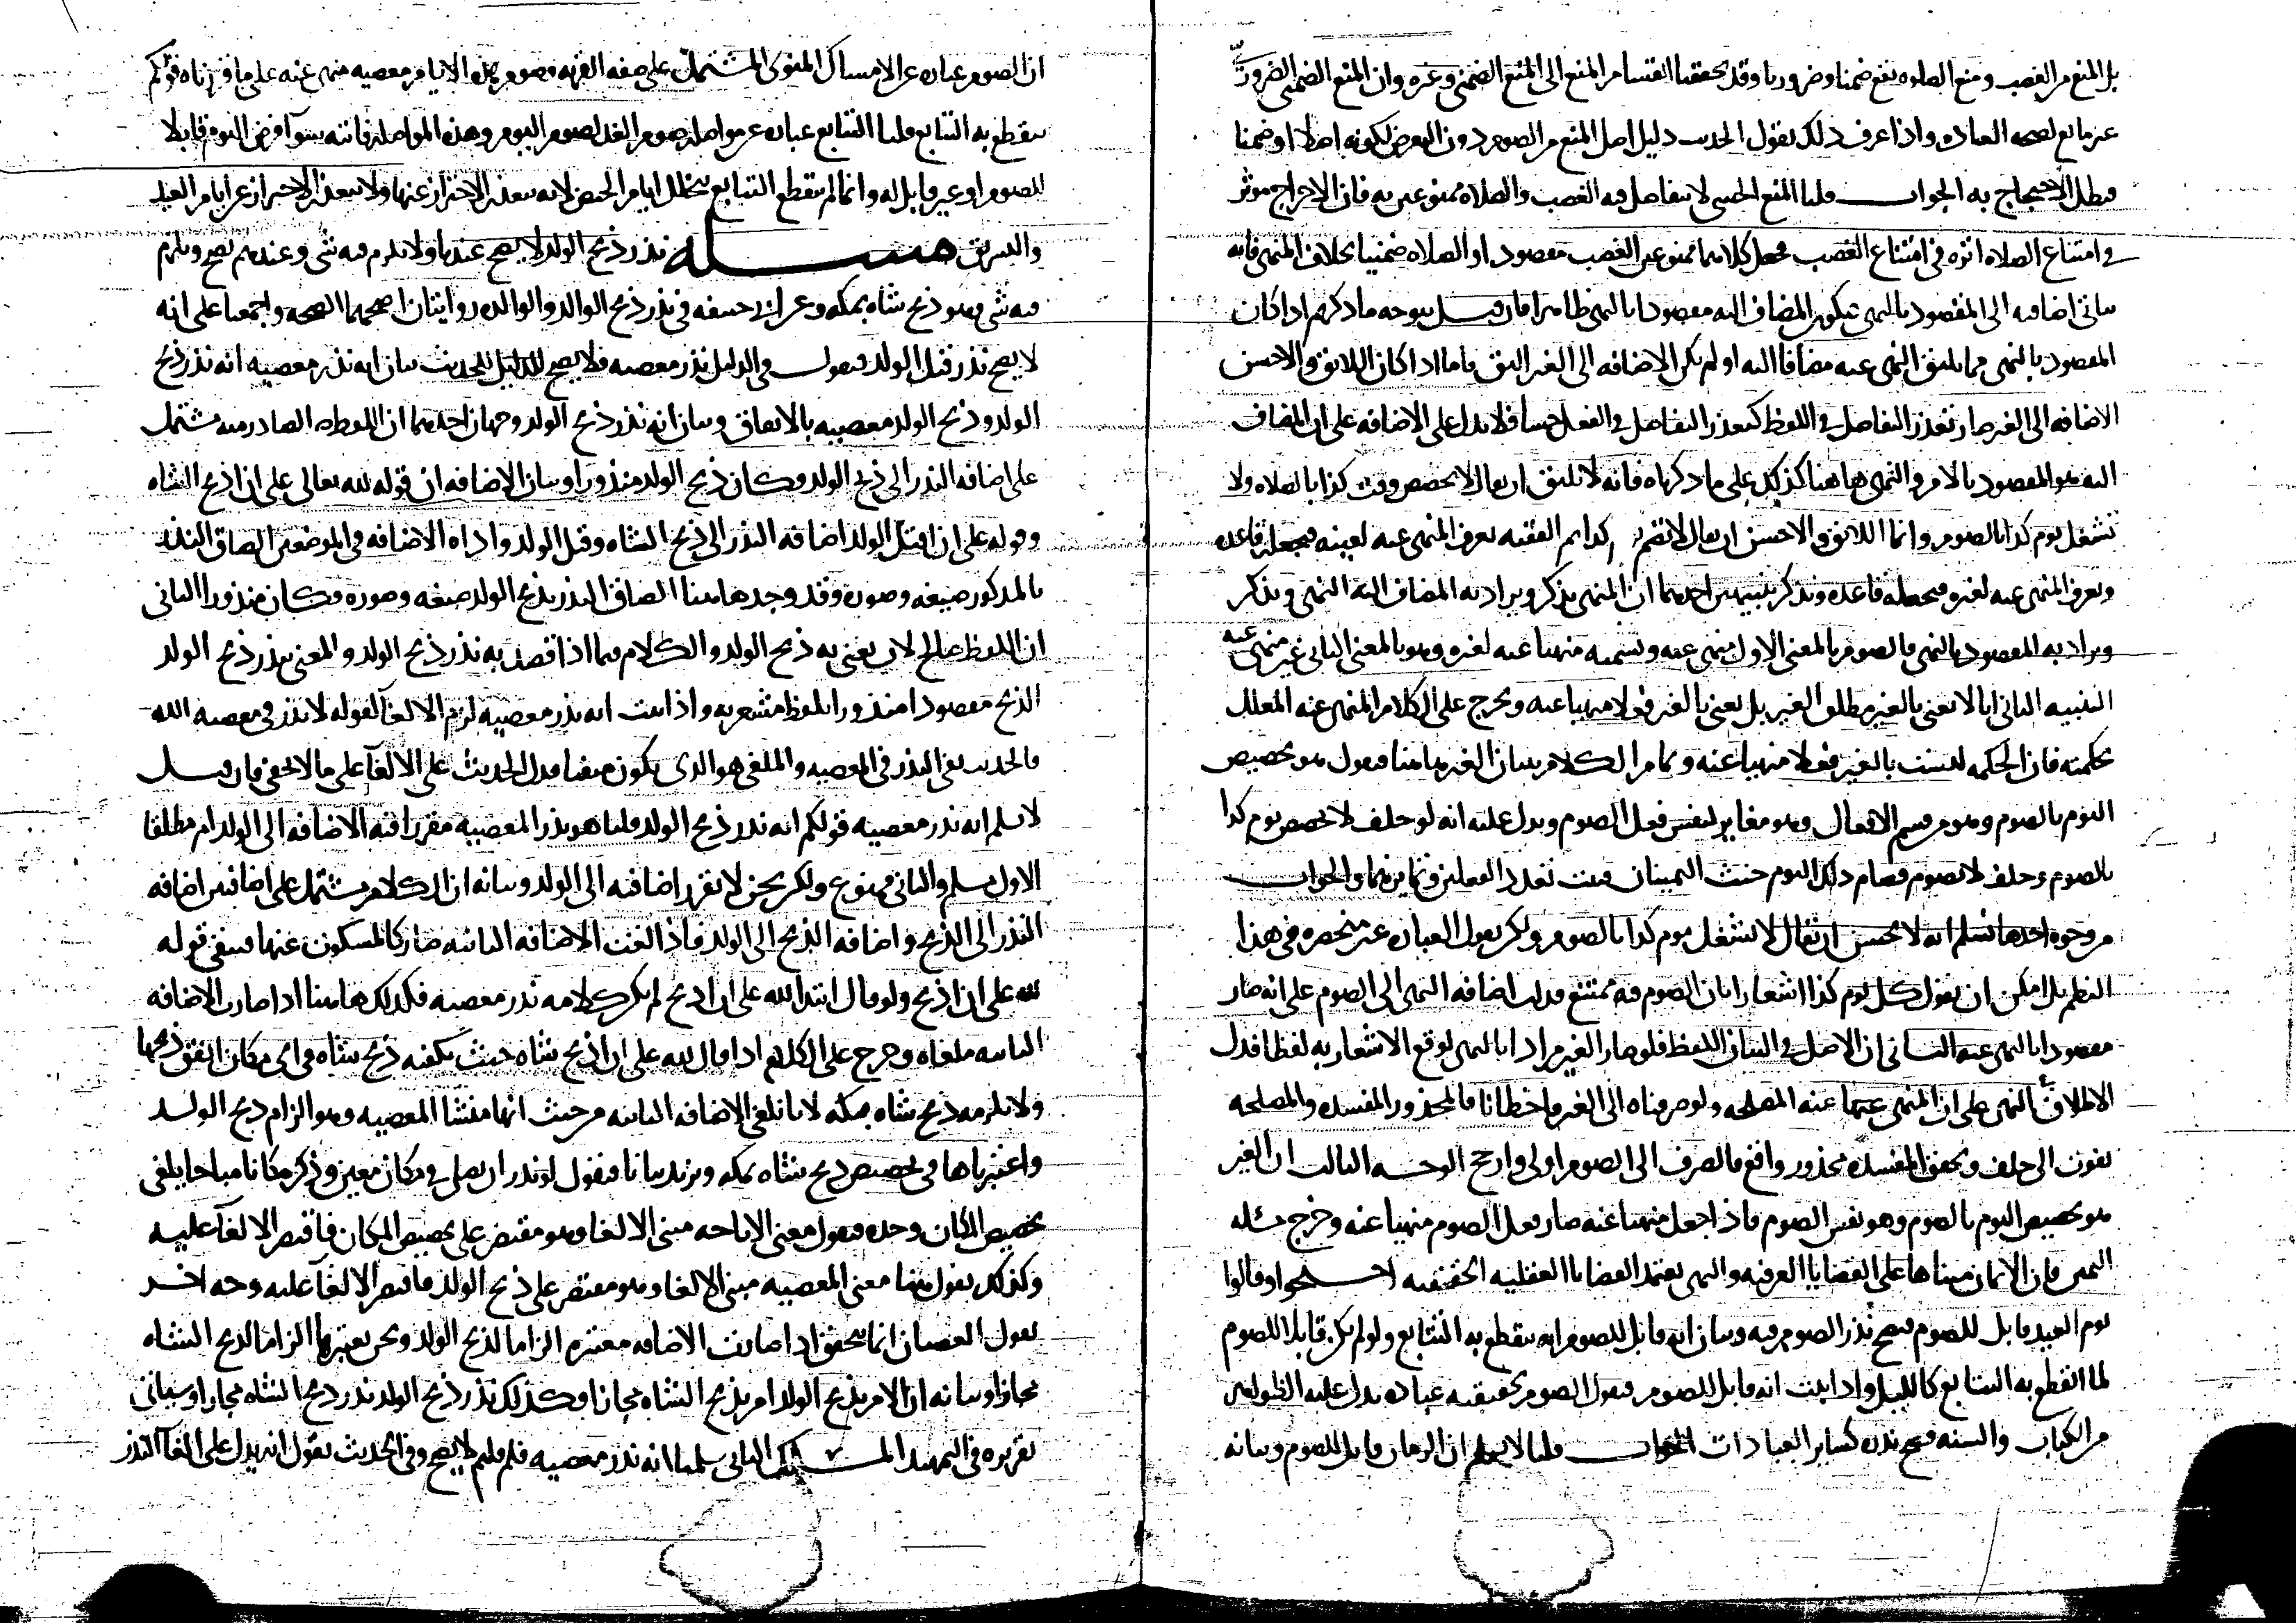 بل المنع من الغصب ومنع الصلوه يقع ضمنا وضروريا وقد تحققنا انقسام المنع الى المنع الضمنى وغيره وان المنع الضمنى الضرورى
غير مانع لصحه العباده واذا عرف ذلك نقول الحديث دليل اصل المنع من الصوم دون التعرض لكونه اصلا او ضمنا
فبطل الاحتجاج به الجواب قلنا المنع الحسى لا يتفاصل فيه الغصب والصلاه ممنوعين به فان الاخراج موثر
فى امتناع الصلاه اثره فى امتناع الغصب فجعل كلاهما ممنوعين الغصب مقصودا والصلاه ضمنيا بخلاف المنهى فانه
ياتى اضافته الى المقصود بالنهى فيكون المضاف اليه مقصودا بالنهى ظاهرا فان قيل يتوجه ما ذكرتم اذا كان
المقصود بالنهى مما يليق النهى عنه مضافا اليه او لم يكن الاضافه الى الغير اليق فاما اذا كان اللائق والاحسن
الاضافه الى الغير صار تعذر التفاصل فى اللفظ كتعذر التفاصل فى الفعل حسا فلا يدل على الاضافه على ان المضاف
اليه هو المقصود بالامر والنهى هاهنا كذلك على ما ذكرناه فانه لا يليق ان يقال لا تخصص وقت كذا بالصلاه ولا
تشغل يوم كذا بالصوم وانما اللائق والاحسن ان يقال لا تقم كذا ثم الفقيه يعرف المنهى عنه لعينه فيجعله قاعده
ويعرف المنهى عنه لغيره فيجعله قاعده ونذكر تنبيهين احدهما ان المنهى يذكر ويراد به المضاف اليه النهى ويذكر
ويراد به المقصود بالنهى فالصوم بالمعنى الاول منهى عنه ونسميه منهيا عنه لغيره وهو بالمعنى الثانى غير منهى عنه
التنبيه الثانى انا لا نعنى بالغير مطلق الغير بل نعنى بالغير فعلا منهيا عنه ويخرج على الكلام المنهى عنه المعلل
بحكمته فان الحكمه ليست بالغير فعلا منهيا عنه وتمام الكلام ببيان الغير هاهنا فنقول هو تخصيص
اليوم بالصوم وهو من قسم الافعال وهو مغاير لنفس فعل الصوم ويدل عليه انه لو حلف لا يخصص يوم كذا
بالصوم وحلف لا يصوم فصام ذلك اليوم حنث اليمينان فيثبت تعدد الفعلين وتغايرهما والجواب
من وجوه احدها نسلم انه لا يحسن ان يقال لا تشغل يوم كذا بالصوم ولكن نقول العباره غير منحصره فى هذا
النظم بل امكن ان يقول كل يوم كذا اشعارا بان الصوم فيه ممتنع فدلت اضافه النهى الى الصوم على انه صار
مقصودا بالنهى عنه الثانى ان الاصل فى البيان اللفظ فلو صار الغير مرادا بالنهى لوقع الاشعار به لفظا فدل
الاطلاق النهى على ان المنهى عنها عنه المصلحه ولو صرفناه الى الغير واخطانا فالمحذور المفسده والمصلحه
تفوت الى خلف وتحقق المفسده محذور واقع فالصرف الى الصوم اولى وارجح الوجه الثالث ان الغير
هو تخصيص اليوم بالصوم وهو نفس الصوم فاذا جعل منهيا عنه صار فعل الصوم منهيا عنه وخرج مسله
اليمين فان الايمان مبناها على القضايا العرفيه والنهى يعتمد القضايا العقليه الحقيقيه احتجوا وقالوا
يوم العيد قابل للصوم فيصح نذر الصوم فيه وبيان انه قابل للصوم انه ينقطع به التتابع ولو لم يكن قابلا للصوم
لما انقطع به التتابع كالليل واذا ثبت انه قابل للصوم فنقول الصوم بحقيقته عباده يدل عليه الظواهر
من الكتاب والسنه فيصح نذره كساير العبادات الجواب قلنا لا نسلم ان الزمان قابل للصوم وبيانه
ان الصوم عباره عن الامساك المنوى المشتمل على صفه القربه وصوم هذه الايام معصيه منهى عنه على ما قررناه قولكم
ينقطع به التتابع قلنا التتابع عباره عن مواصله صوم الغد لصوم اليوم وهذه المواصله فائته سوآ فرض اليوم قابلا
للصوم او غير قابل له وانما لم ينقطع التتابع بتخلل ايام الحيض لانه يتعذر الاحتراز عنها ولا يتعذر الاحتراز عن ايام العيد
والتشريق مسله نذر ذبح الولد لا يصح عندنا ولا يلزم فيه شى وعندهم يصح ويلزم
فيه شى وهو ذبح شاه بمكه وعن ابى حنيفه فى نذر ذبح الوالد والوالده روايتان اصحهما الصحه واجمعنا على انه
لا يصح نذر قتل الولد فنقول فى الدليل نذر معصيه فلا يصح للدليل للحديث بيان انه نذر معصيه انه نذر ذبح
الولد وذبح الولد معصيه بالاتفاق وبيان انه نذر ذبح الولد وجهان احدهما ان اللفظه الصادر منه مشتمل
على اضافه النذر الى ذبح الولد فكان ذبح الولد منذورا وبيان الاضافه ان قوله لله تعالى على ان اذبح الشاه
وقوله على ان اقتل الولد اضافه النذر الى ذبح الشاه وقتل الولد واداه الاضافه فى الموضعين الصاق النذر
بالمذكور صيغه وصوره وقد وجد هاهنا الصاق النذر بذبح الولد صيغه وصوره فكان منذورا الثانى
ان اللفظ صالح لان يعنى به ذبح الولد والكلام فيما اذا قصد به نذر ذبح الولد والمعنى بنذر ذبح الولد
الذبح مقصودا منذورا بلفظ مشعر به واذا ثبت انه نذر معصيه لزم الالغآ لقوله لا نذر فى معصيه الله
فالحديث نفى النذر فى المعصيه والملغى هو الذى يكون منفيا فدل الحديث على الالغآ على ما لا يخفى فان قيل
لا نسلم انه نذر معصيه قولكم انه نذر ذبح الولد قلنا هو نذر المعصيه مقررا فيه الاضافه الى الولد ام مطلقا
الاول مسلم والثانى ممنوع ولكن نحن لا نقرر اضافته الى الولد وبيانه ان الكلام مشتمل على اضافتين اضافه
النذر الى الذبح واضافه الذبح الى الولد فاذا الغيت الاضافه الثانيه صار كالمسكوت عنها فيبقى قوله
لله على ان اذبح ولو قال ابتدا لله على ان اذبح لم يكن كلامه نذر معصيه فكذلك هاهنا اذا صارت الاضافه
الثانيه ملغاه وخرج على الكلام اذا قال لله على ان اذبح شاه حيث يكفيه ذبح شاه فى اى مكان اتفق ذبحها
ولا يلزمه ذبح شاه بمكه لانا نلغى الاضافه الثانيه من حيث انها منشا المعصيه وهو الزام ذبح الولد
واعتبرناها فى تخصيص ذبح شاه بمكه ونزيد بيانا فنقول لو نذر ان يصلى فى مكان معين وذكر مكانا مباحا يلغى
تخصيص المكان وحده فنقول معنى الاباحه مبنى الالغا وهو مقتصر على تخصيص المكان فاقتصر الالغآ عليه
وكذلك نقول هاهنا معنى المعصيه مبنى الالغا وهو مقتصر على ذبح الولد فاقتصر الالغآ عليه وجه اخر
نقول العصيان انما يتحقق اذا صارت الاضافه معتبره الزاما لذبح الولد ونحن نعتبرها الزاما لذبح الشاه
مجازا وبيانه ان الامر بذبح الولد امر بذبح الشاه مجازا وكذلك نذر ذبح الولد نذر ذبح الشاه مجازا وسياتى
تقريره فى التمهيد المسلك الثانى سلمنا انه نذر معصيه فلم قلتم لا يصح وفى الحديث نقول انه يدل على الغآ النذر